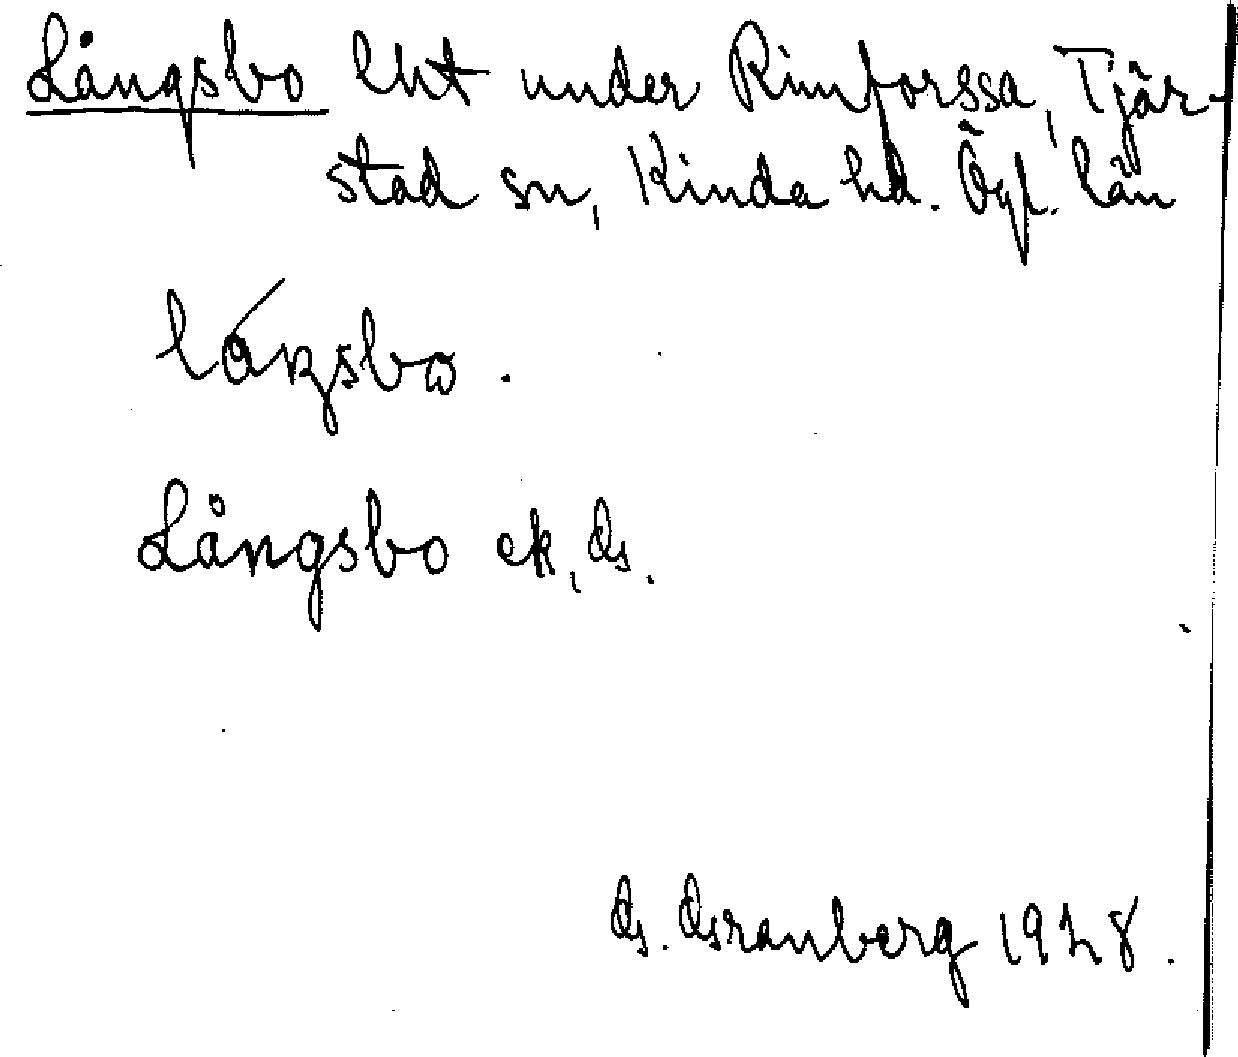 Långsbo lht under Rimforssa, Tjär-
stad sn, Kinda hd. Ögl. län
lóŋsbω.
Långsbo ek, G.
G. Granberg 1928.